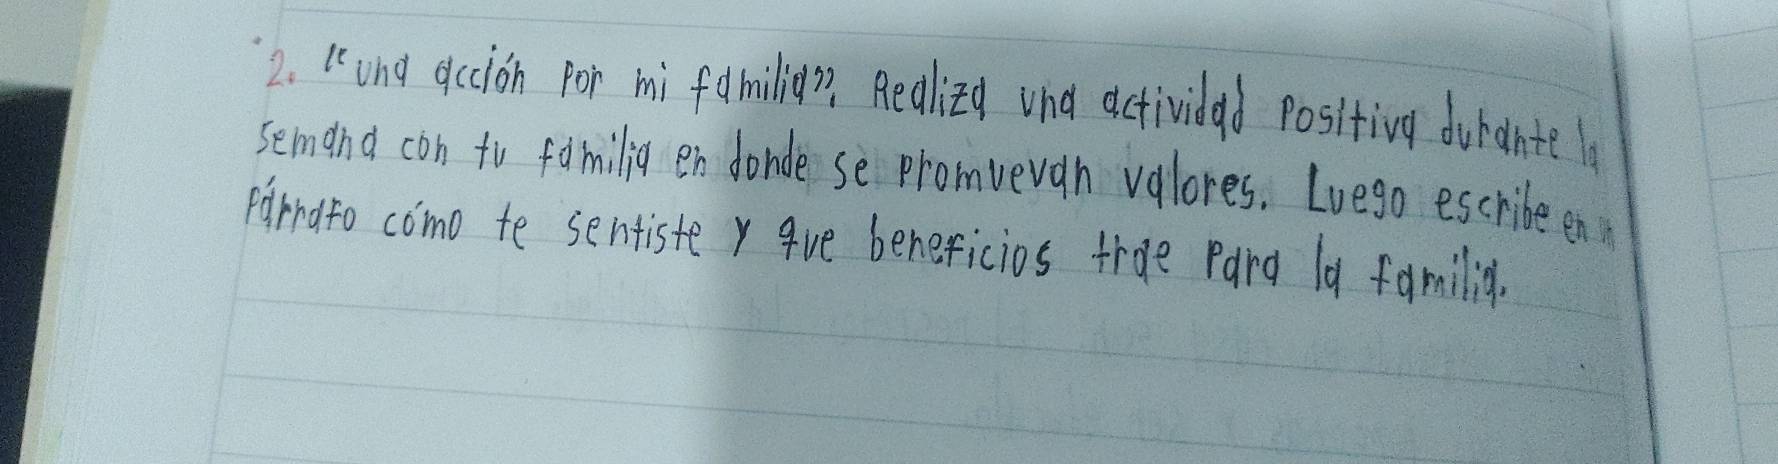 2. "una acción por mi familia". Realiza una actividad positiva durante la
semana con tu familia en donde se promuevan valores. Luego escribe en
párrafo cómo te sentiste y que beneficios trae para la familia.